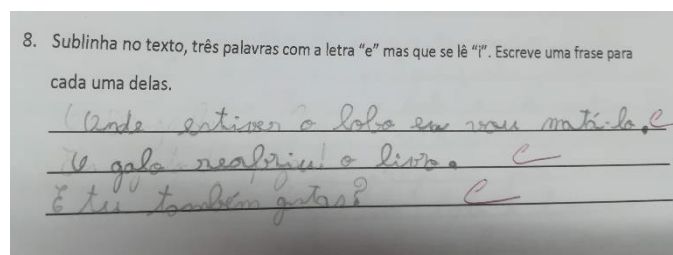 8. Sublinha no texto, três palavras com a letra “e” mas que se lê “i”. Escreve uma frase para
cada uma delas.
Onde estiver o lobo eu vou matá-lo. C
O galo reabriu o livro. C
E tu também gostas? C